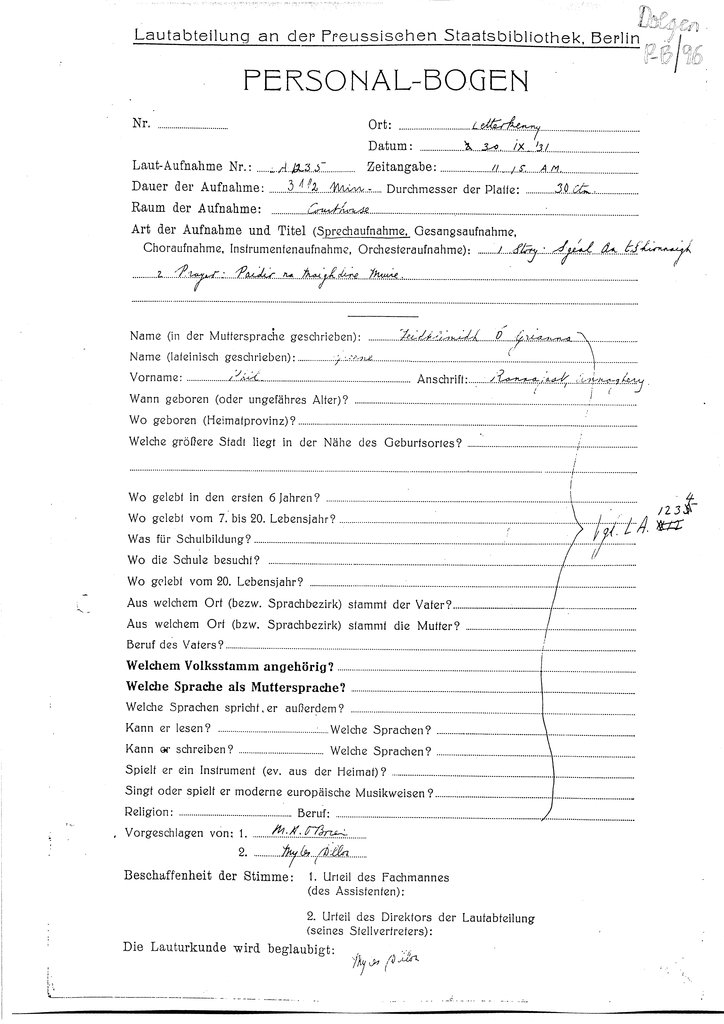 Doegen
P-B/96
Lautabteilung an der Preussischen Staatsbibliothek, Berlin
PERSONAL-BOGEN
Nr. Ort: Letterkenny
Datum: 30 IX '31
Laut-Aufnahme Nr.: Zeitangabe: 11 15 A.M.
Dauer der Aufnahme: 3 1/2 Min. Durchmesser der Platte: 30 Ctm.
Raum der Aufnahme: Courthouse
Art der Aufnahme und Titel (Sprechaufnahme, Gesangsaufnahme,
Choraufnahme, Instrumentenaufnahme, Orchesteraufnahme): 1 Story: Sgéal An tShionnaigh
2 Prayer: Paidir na Maighdine Muire
Name (in der Muttersprache geschrieben): Feidhlimidh Ó Grianna
Name (lateinisch geschrieben): Greene
Vorname: Phil Anschrift: Rannafast, Annagbery
Wann geboren (oder ungefähres Alter)?
Wo geboren (Heimatprovinz)?
Welche größere Stadt liegt in der Nähe des Geburtsortes?
Wo gelebt in den ersten 6 Jahren?
Wo gelebt vom 7. bis 20. Lebensjahr?
vgl. L A. 1234
Was für Schulbildung?
Wo die Schule besucht?
Wo gelebt vom 20. Lebensjahr?
Aus welchem Ort (bezw. Sprachbezirk) stammt der Vater?
Aus welchem Ort (bzw. Sprachbezirk) stammt die Mutter?
Beruf des Vaters?
Welchem Volksstamm angehörig?
Welche Sprache als Muttersprache?
Welche Sprachen spricht er außerdem?
Kann er lesen? Welche Sprachen?
Kann er schreiben? Welche Sprachen?
Spielt er ein Instrument (ev. aus der Heimat)?
Singt oder spielt er moderne europäische Musikweisen?
Religion: Beruf:
Vorgeschlagen von: 1. M. A. O'Brien
2. Myles Dillon
Beschaffenheit der Stimme: 1. Urteil des Fachmannes
(des Assistenten):
2. Urteil des Direktors der Lautabteilung
(seines Stellvertreters):
Die Lauturkunde wird beglaubigt: Myles Dillon